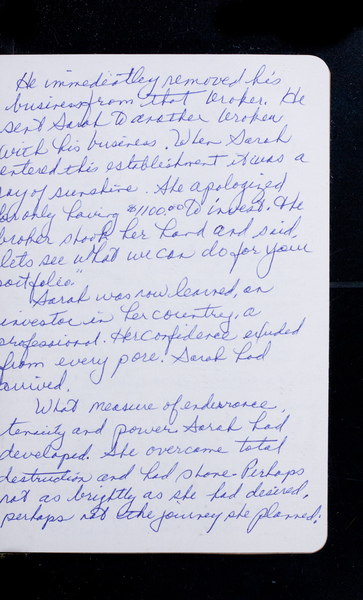 He immediatley removed his
business from that broker. He
sent Sarah to another broker
with his business. When Sarah
entered this establishment it was a
ray of sunshine. She apologized
for only having $1100.00 to invest. The
broker shook her hand and said,
lets see what we can do for your
portfolio."
Sarah was now learned, an
investor in her country, a
professional. Her confidence exuded
from every pore. Sarah had
arrived.
What measure of endurance,
tenacity and power Sarah had
developed. She overcame total
destruction and had shone. Perhaps
not as brightly as she had desired,
perhaps not the journey she planned;